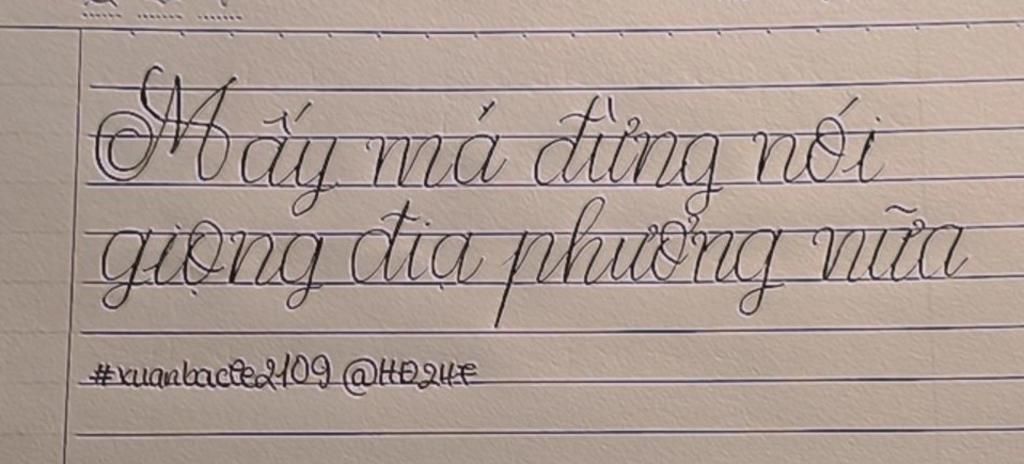 Mấy má đừng nói
giọng địa phương nữa
#xuanbacte2109 @HĐ24E